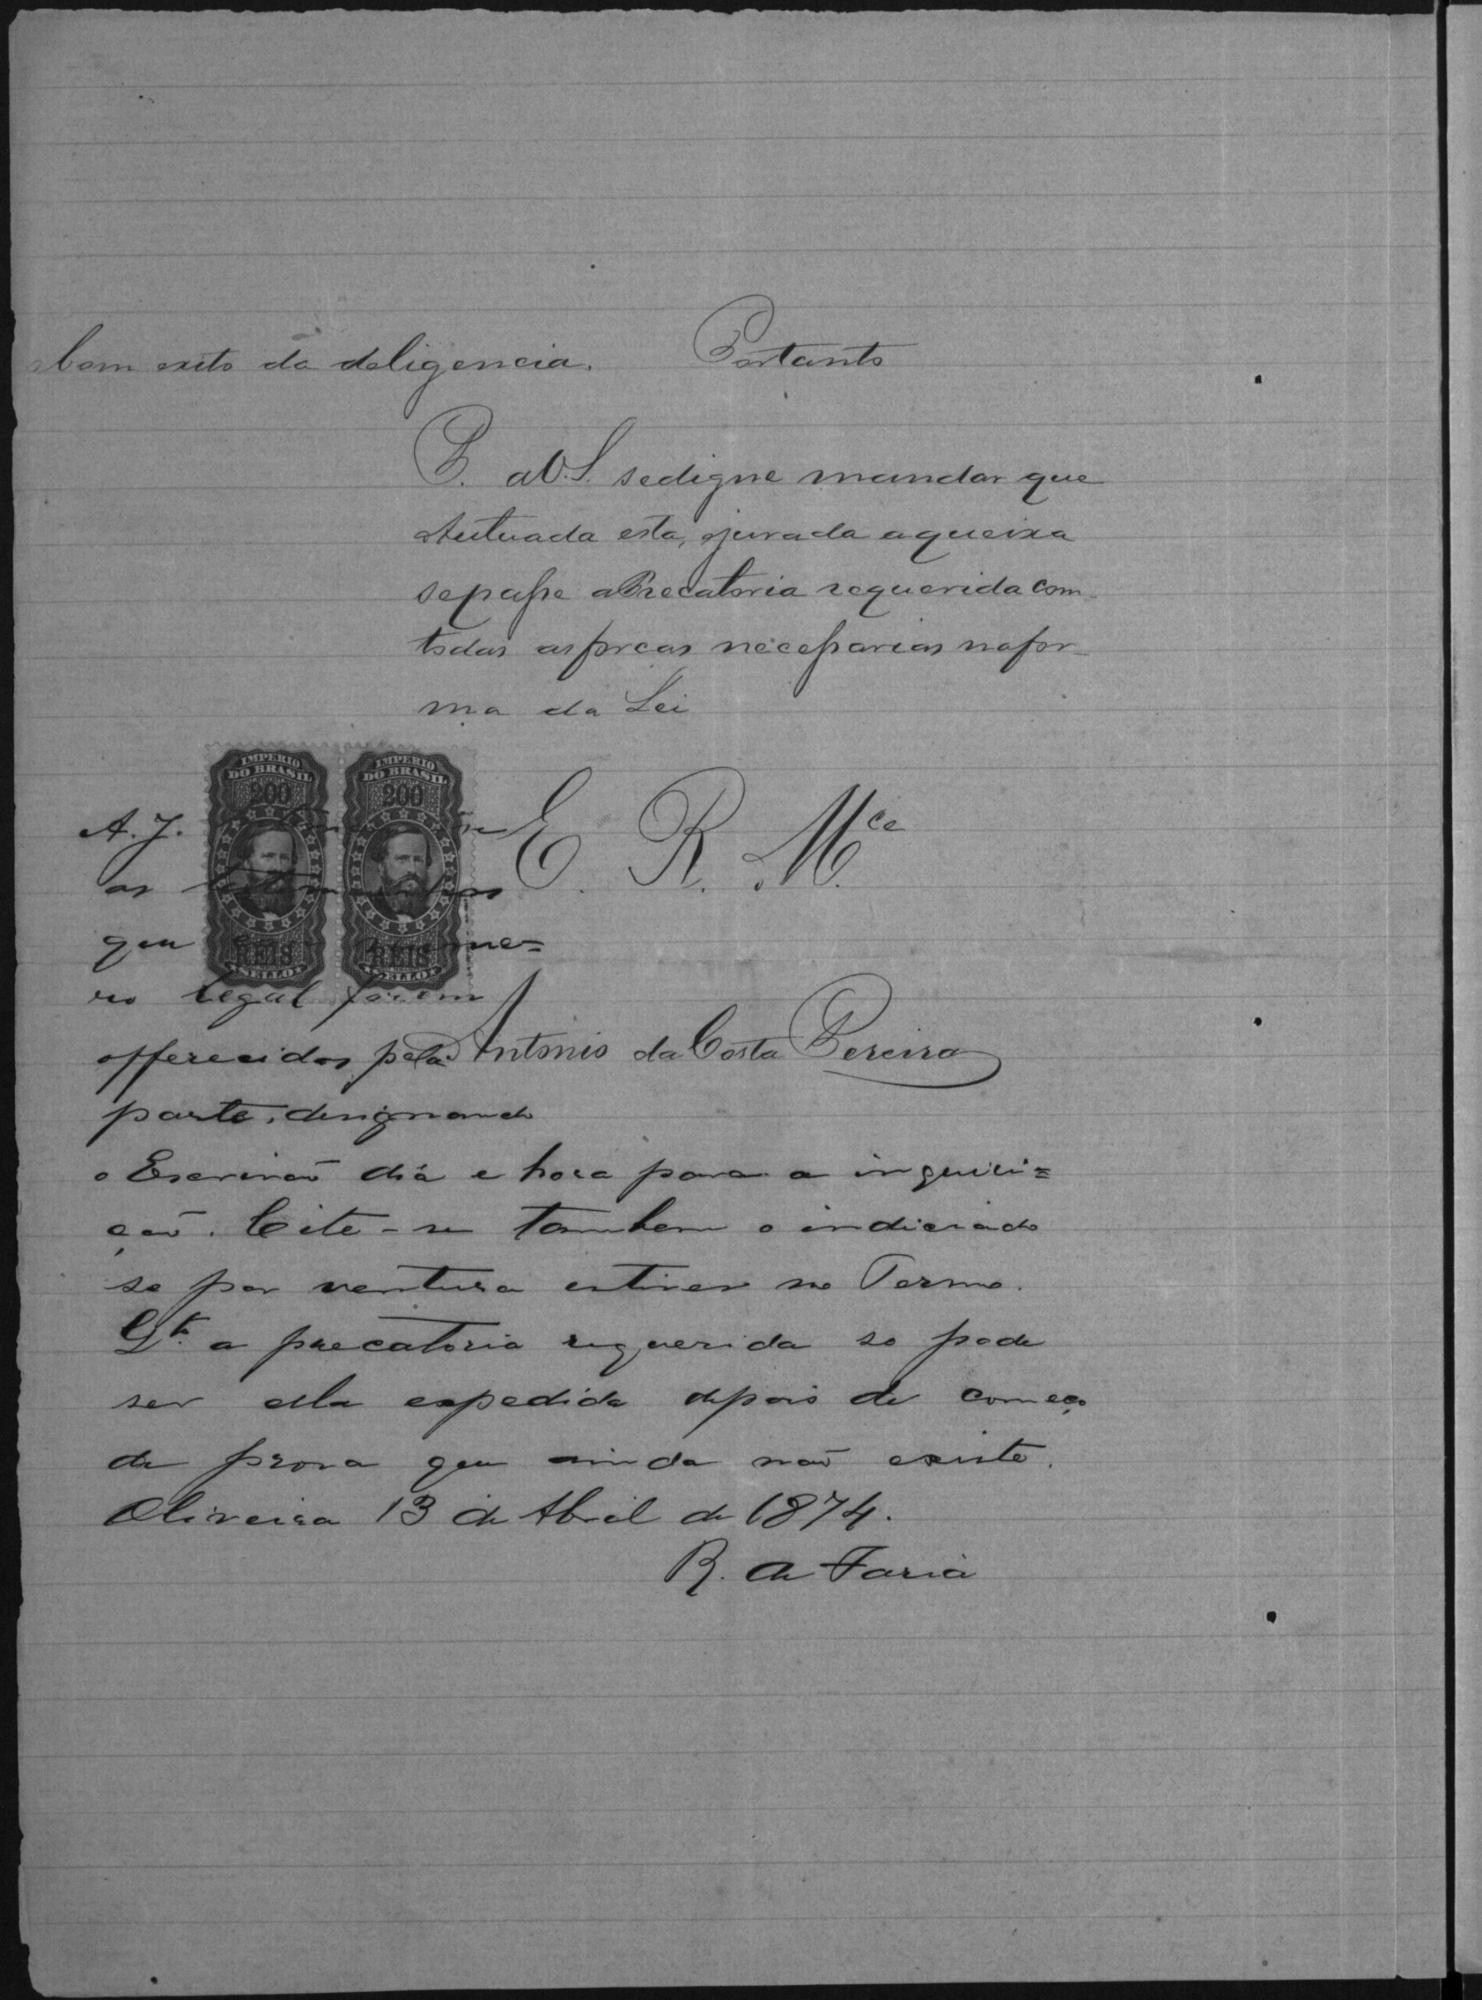 bom exito da deligencia. Portanto
P. a V.S. sedigne mandar que
Autuada esta, ejurada aqueixa
sepasse aPrecatoria requerida com
todas asforcas necessarias nafor-
ma da Lei
IMPERIO DO BRASIL
200
REIS
SELLO
IMPERIO DO BRASIL
200
REIS
SELLO
E. R. M.ce
A. J.
as testemunhas
que
ro legal forem
Antonio da Costa Pereira
offerecidas pela
parte, designando
o Escrivaõ dia e hora para a inquiri=
çaõ. Cite-se tambem o indiciado
se por ventura estiver no Termo.
Qt. a precatoria requerida so pode
ser ella expedida depois de começo
de prova que ainda naõ existe.
Oliveira 13 de Abril de 1874.
R. de Faria